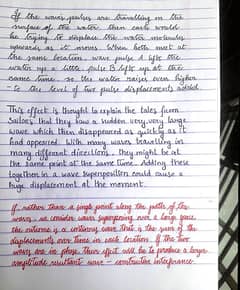 If the wave pulses are travelling on the
surface of the water then each would
be trying to displace the water molecules
upwards as it moves. When both meet at
the same location, wave pulse A lifts the
water up a little pulse B lifts up at the
same time so the water raises even higher
- to the level of two pulse displacements added.
This effect is thought to explain the tales from
sailors that they saw a sudden very, very large
wave which then disappeared as quickly as it
had appeared. With many waves travelling in
many different directions. They might be at
the same point at the same time. Adding these
together in a wave superposition could cause a
huge displacement at the moment.
If, rather than a single point along the paths of the
waves, we consider waves superposing over a large space
the outcome is a continuous wave that is the sum of the
displacements over time in each location. If the two
waves are in phase their effect will be to produce a larger
amplitude resultant wave - constructive interference